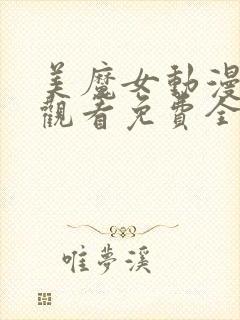 美魔女動漫
觀看免費全
唯夢溪